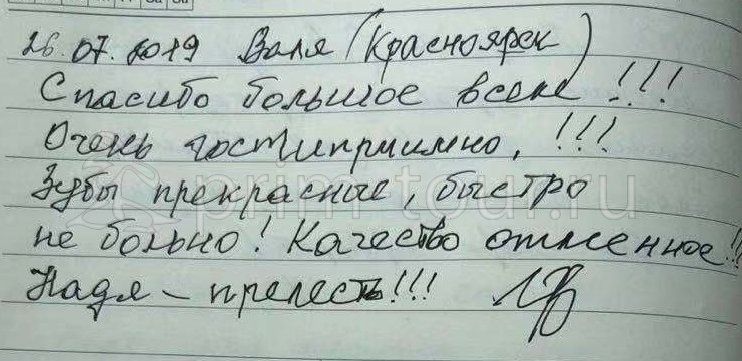 26.07.2019 Валя (Красноярск)
Спасибо большое всем !!!
Очень гостиприимно, !!!
Зубы прекрасные, быстро
не больно! Качество отменное!!!
Надя – прелесть!!!
prim-tour.ru